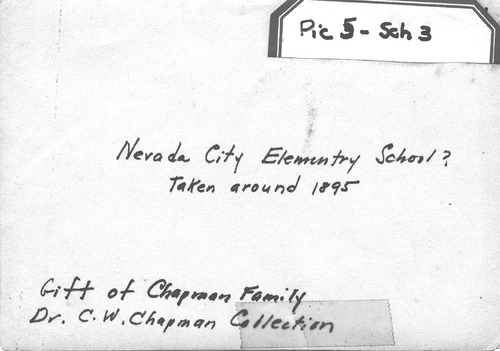 Pic 5 - Sch 3
Nevada City Elementry School?
Taken around 1895
Gift of Chapman Family
Dr. C. W. Chapman Collection